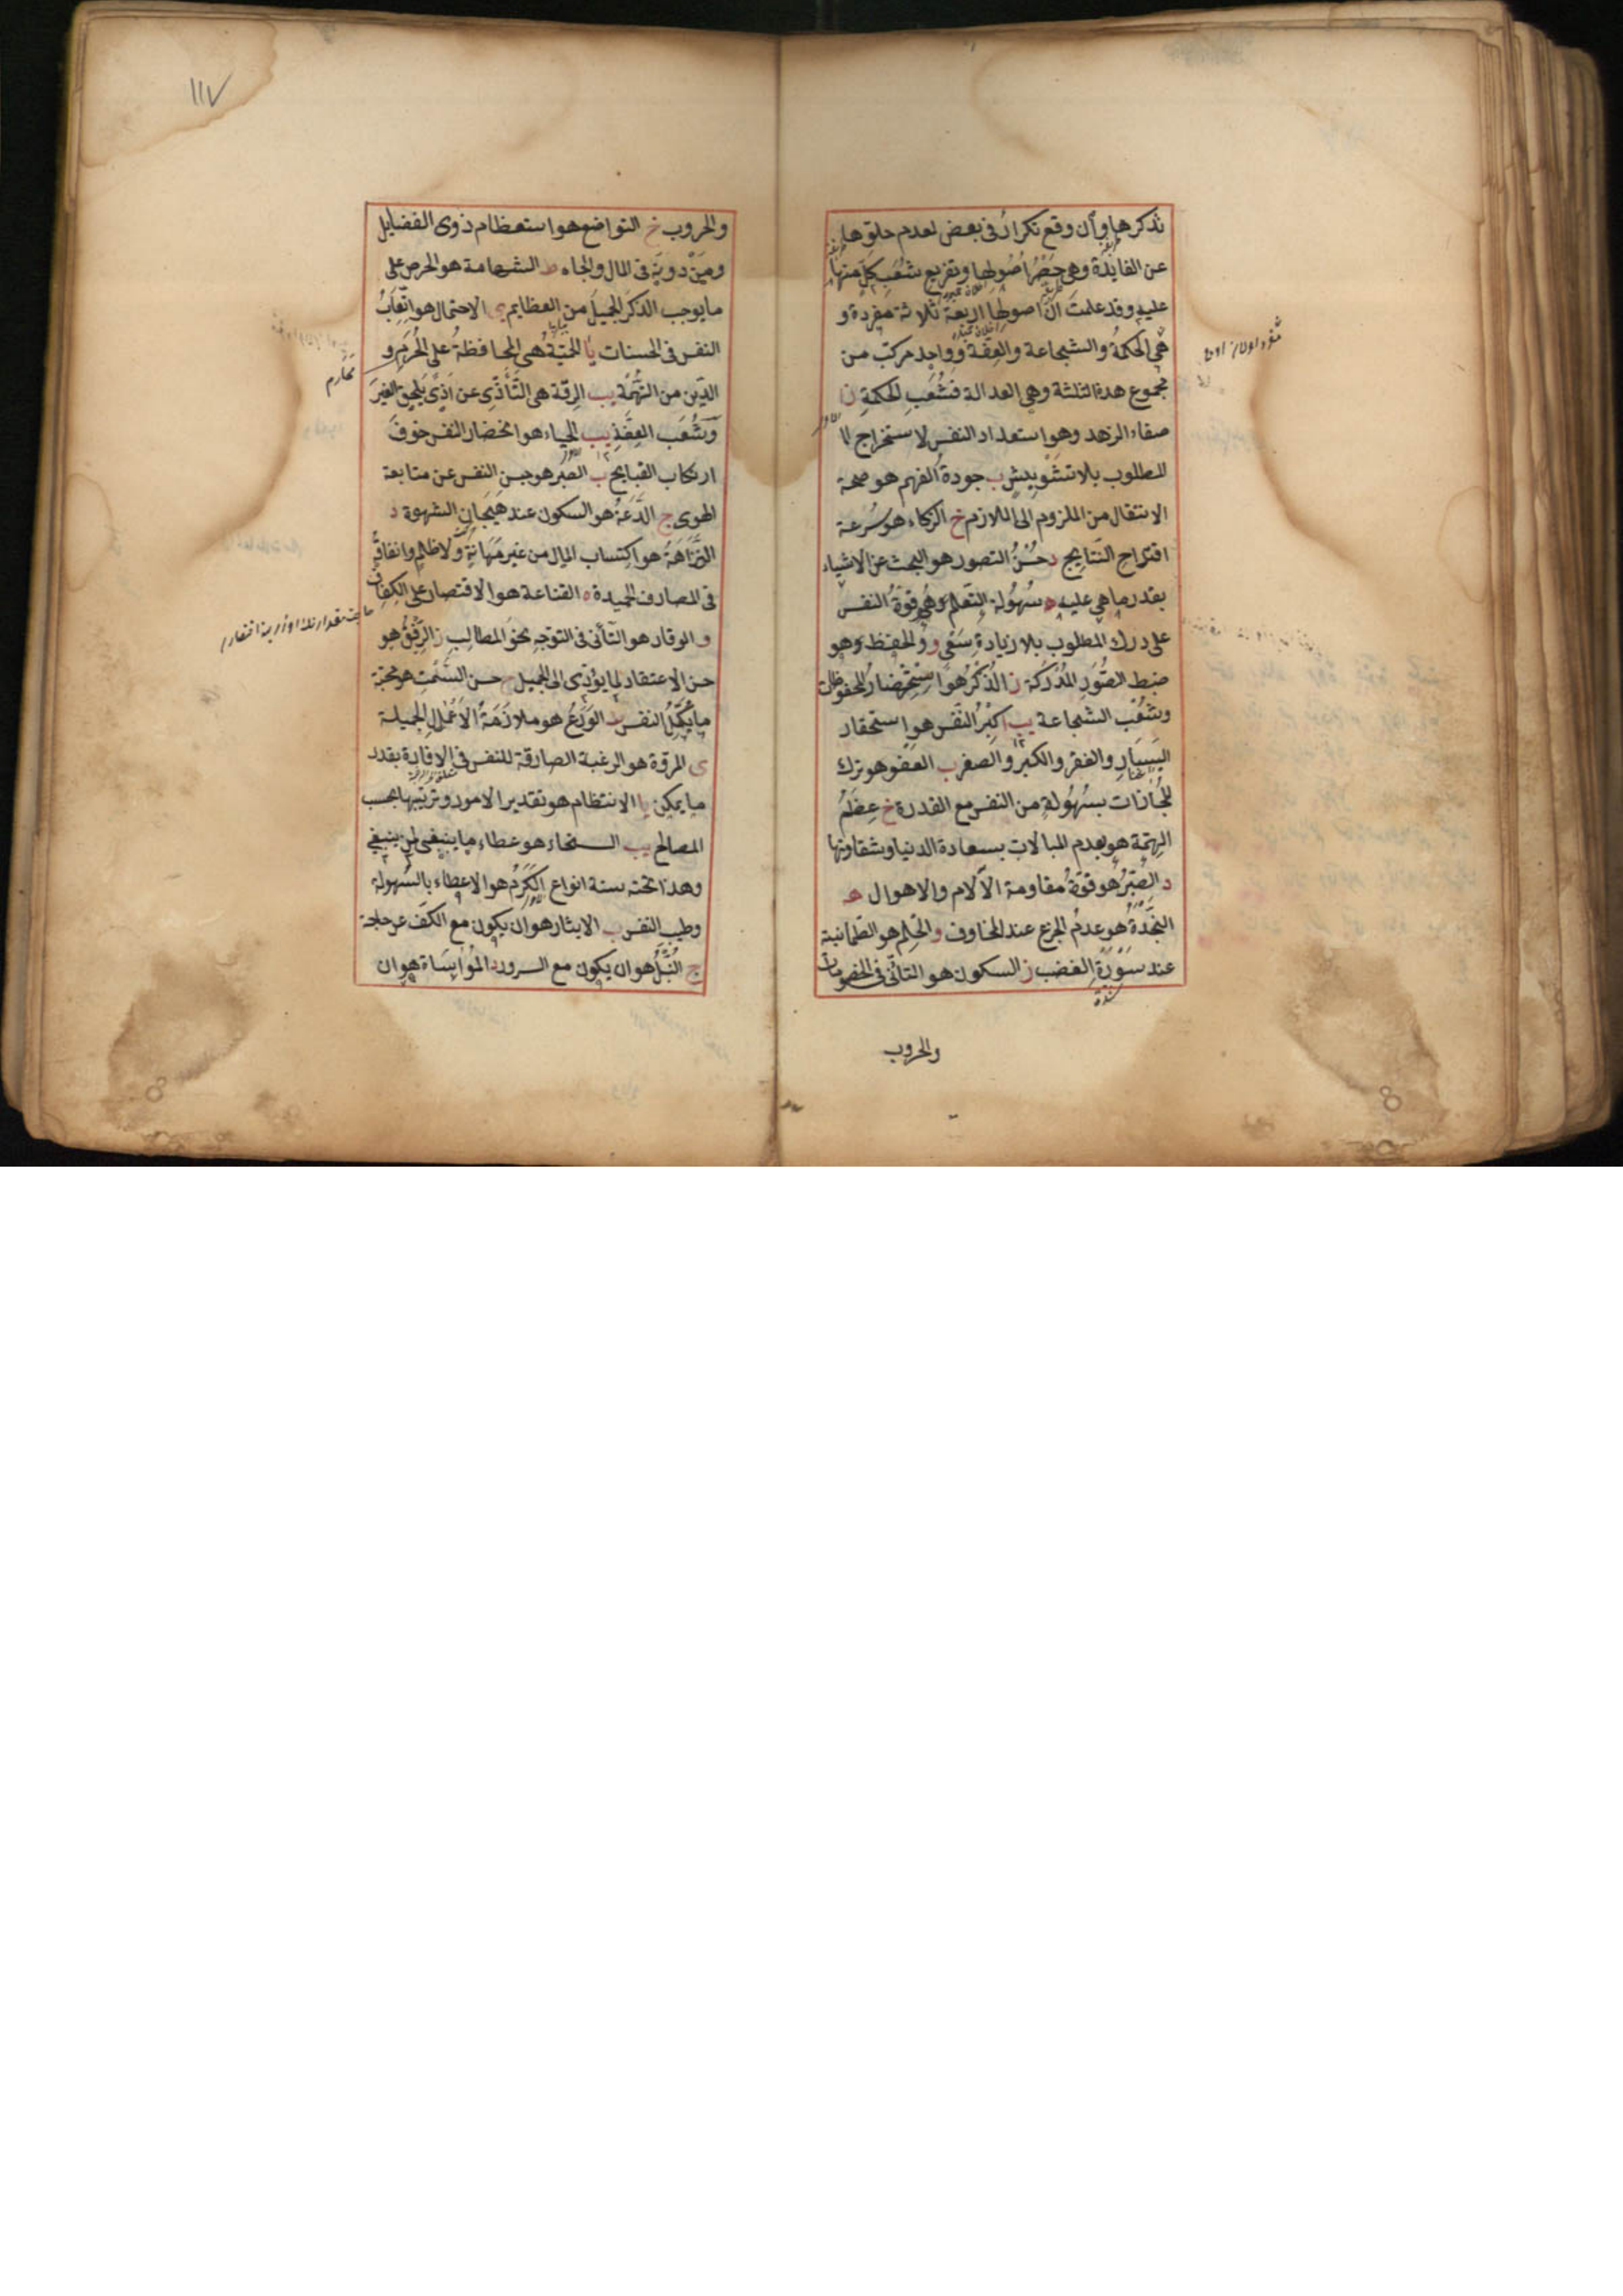 نذكرها وان وقع تكرار فى بعض لعدم خلوها
عن الفايدة وهى حصر اصولها وتفريع شعب كل منها
عليه وقد علمت ان اصولها اربعة ثلاثة مفردة و
هى الحكمة والشجاعة والعفة وواحد مركب من
مجموع هذه الثلثة وهى العدالة فشعب الحكمة ز ا
صفاء الزهد وهو استعداد النفس لاستخراج
المطلوب بلا تشويش ب جودة الفهم هو صحة
الانتقال من الملزوم الى اللازم ج الزكاء هو سرعة
اقتراح النتايج د حسن التصور هو البحث عن الاشياء
بقدر ما هى عليه ه سهولة التعلم وهى قوة النفس
على درك المطلوب بلا زيادة سعى و والحفظ وهو
ضبط الصور المدركة ز الذكر هو استحضار المحفوظات
وشعب الشجاعة يب ا كبر النفس هو استحقار
اليسار والفقر والكبر والصغر ب العفو هو ترك
المجازات بسهولة من النفس مع القدرة ج عظم
الهمة هو عدم المبالات بسعادة الدنيا وشقاوتها
د الصبر هو قوة مقاومة الآلام والاهوال ه
النجدة هو عدم الجزع عند المخاوف و الحلم هو الطمانينة
عند سورة الغضب ز السكون هو التأنى فى الخصومات
شدة
والحروب
١١٧
والحروب ح التواضع هو استعظام ذوى الفضايل
ومن دونه فى المال والجاه ط الشهامة هو الحرص على
ما يوجب الذكر الجميل من العظايم ى الاحتمال هو اتعاب
النفس فى الحسنات يا الحمية هى المحافظة على الحرم و
محارم
الدين من التهمة يب الرقة هى التأذى عن اذى يلحق الغير
وشعب العفة يب ا الحياء هو انحضار النفس خوف
ارتكاب القبايح ب الصبر هو حبس النفس عن متابعة
الهوى ج الدعة هو السكون عند هيجان الشهوة د
النزاهة هو اكتساب المال من غير مهانة ولا ظلم وانفاقه
فى المصارف الحميدة ه القناعة هو الاقتصار على الكفاف
و الوقار هو التأنى فى التوجه نحو المطالب ز الرفق هو
حسن الاعتقاد لما يؤدى الى الجميل ح حسن السمت هو محبة
ما يكمل النفس ط الورع هو ملازمة الاعمال الجميلة
ى المروة هو الرغبة الصارقة للنفس فى الافادة بقدر
ما يمكن يا الانتظام هو تقدير الامور وترتيبها بحسب
المصالح يب السخاء هو عطاء ما ينبغى لمن ينبغى
وهذا تحته ستة انواع ا الكرم هو الاعطاء بالسهولة
وطيب النفس ب الايثار هو ان يكون مع الكف عن حاجة
ج النبل هو ان يكون مع السرور د المواساة هو ان